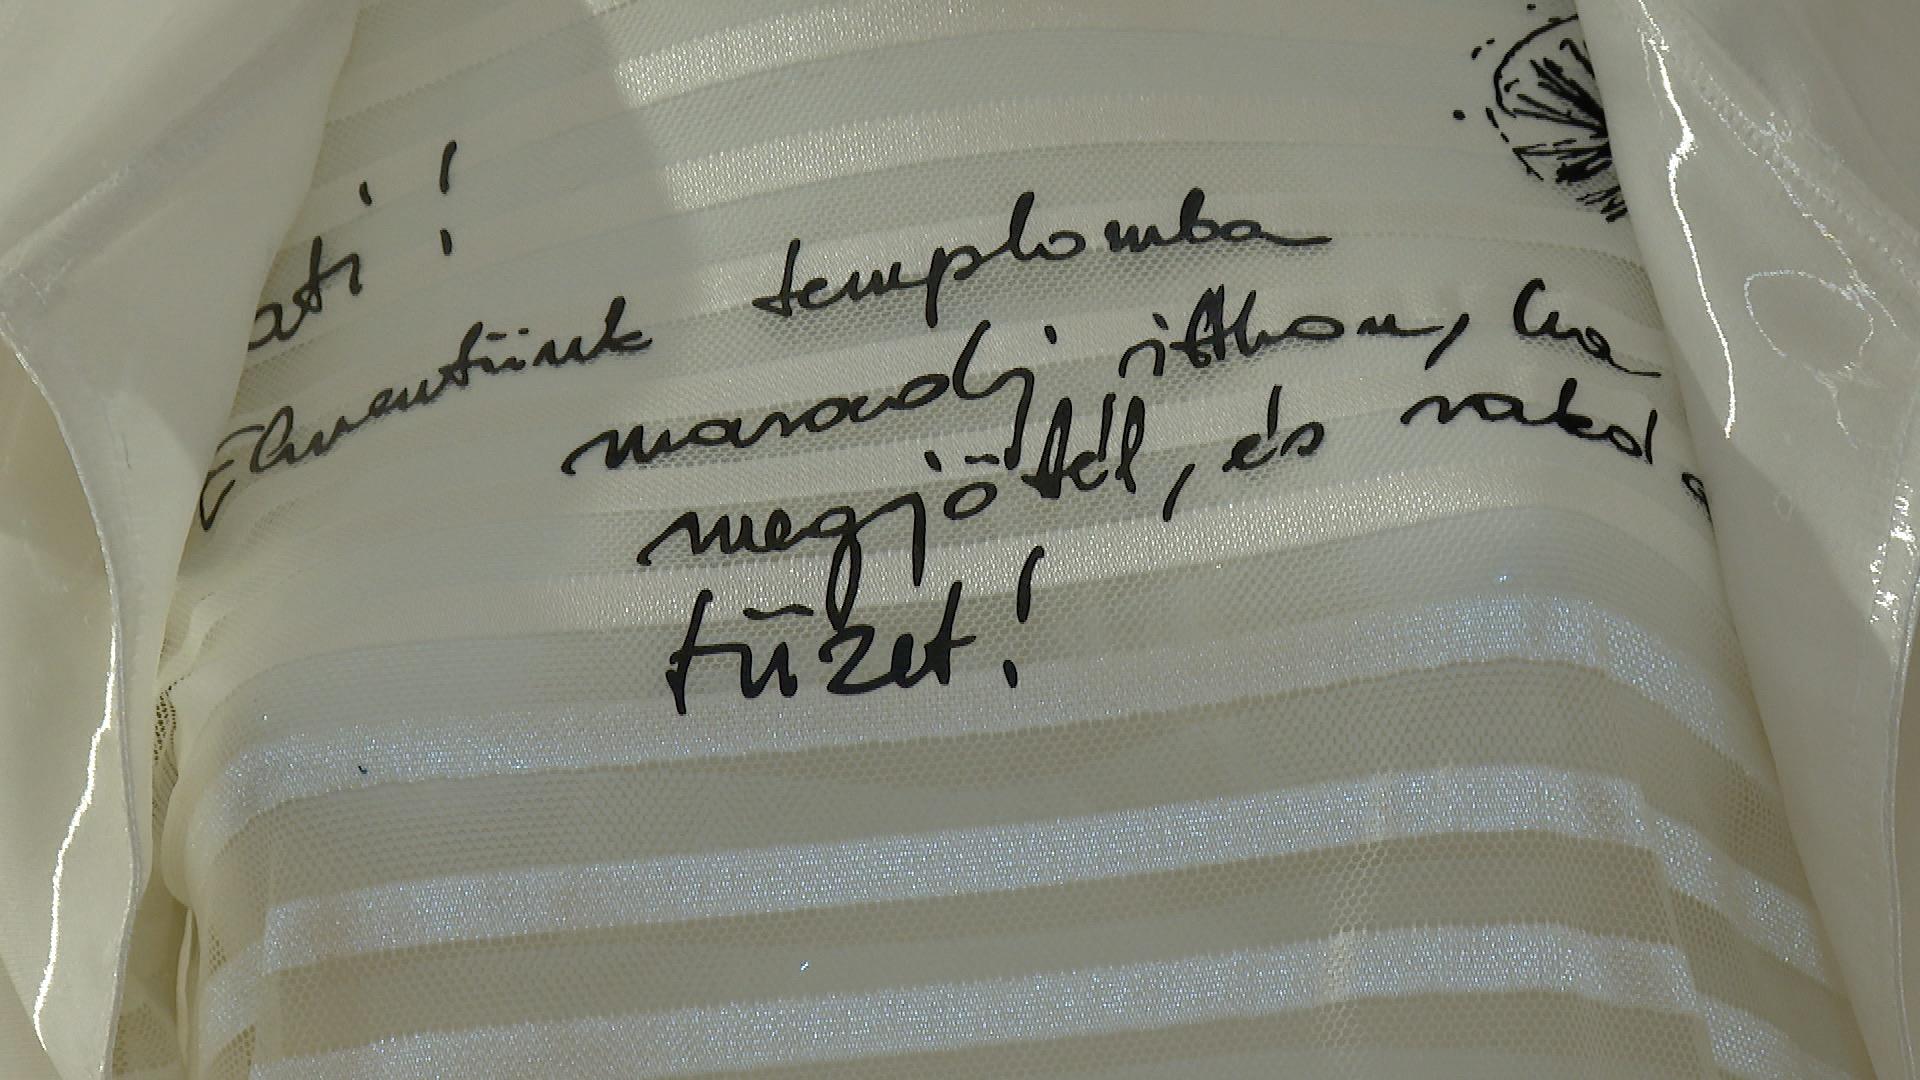 ati!
Elmentünk templomba
maradj itthon, ha
megjöttél, és rakd
tüzet!